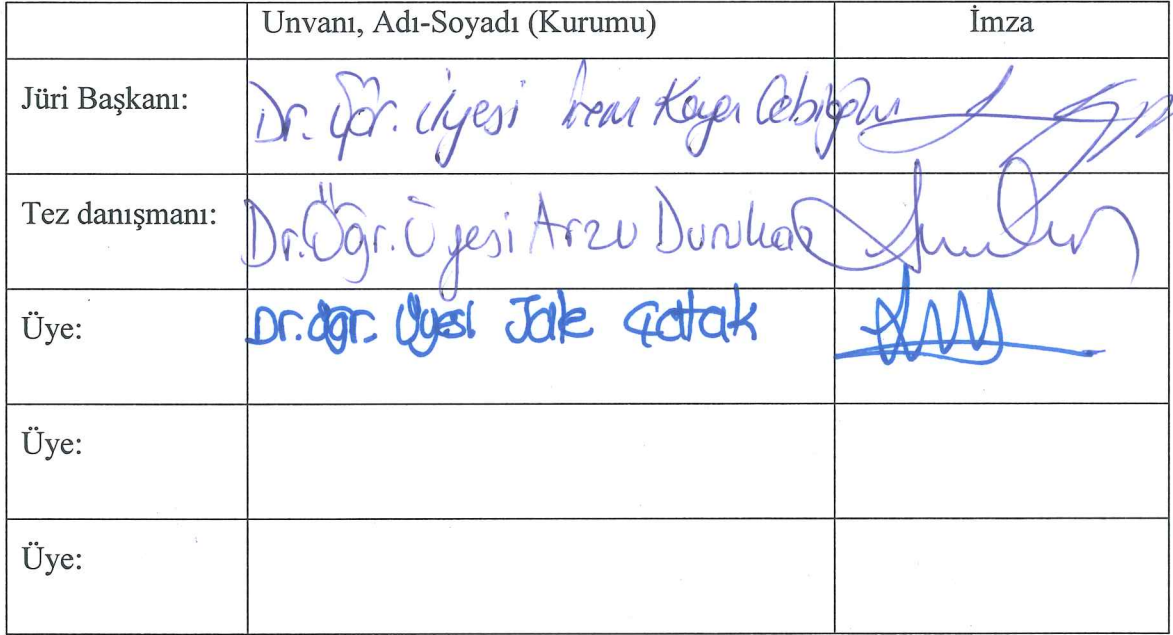 Unvanı, Adı-Soyadı (Kurumu) İmza
Jüri Başkanı: Dr. Öğr. Üyesi İrem Kaya Cebioğlu
Tez danışmanı: Dr. Öğr. Üyesi Arzu Durukan
Üye: Dr. Öğr. Üyesi Jale Çatak
Üye:
Üye: